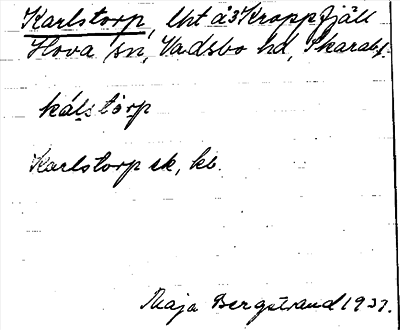 Karlstorp, lht å 3 Kroppfjäll
Hova sn, Vadsbo hd, Skarab.
kálstòrp
Karlstorp ek, kb.
Maja Bergstrand 1937.